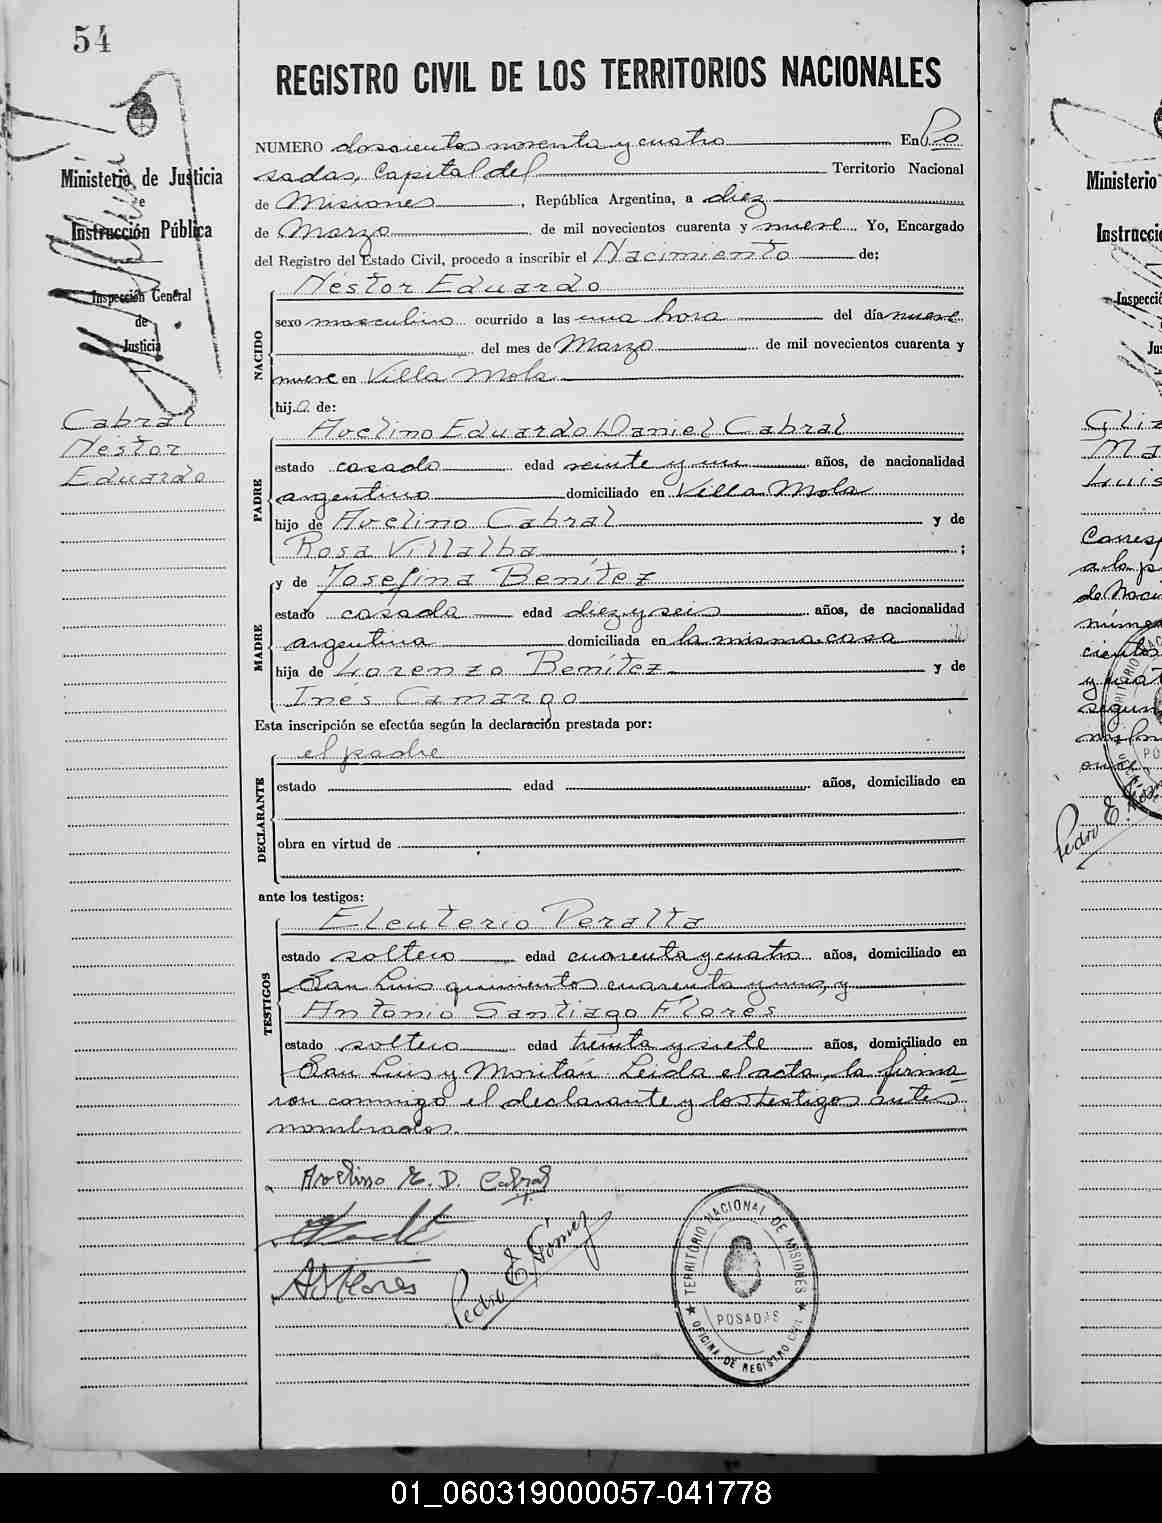 54
REGISTRO CIVIL DE LOS TERRITORIOS NACIONALES
Ministerio de Justicia
e
Instrucción Pública
Inspección General
de
Justicia
Cabral
Néstor
Eduardo
NUMERO doscientos noventa y cuatro En Po
sadas, Capital del Territorio Nacional
de Misiones, República Argentina, a diez
de Marzo de mil novecientos cuarenta y nueve. Yo, Encargado
del Registro del Estado Civil, procedo a inscribir el Nacimiento de:
NACIDO
Néstor Eduardo
sexo masculino ocurrido a las una hora del día nueve
del mes de Marzo de mil novecientos cuarenta y
nueve en Villa Mola
hijo de:
PADRE
Avelino Eduardo Daniel Cabral
estado casado edad veinte y un años, de nacionalidad
argentino domiciliado en Villa Mola
hijo de Avelino Cabral y de
Rosa Villalba;
MADRE
y de Josefina Benítez
estado casada edad diez y seis años, de nacionalidad
argentina domiciliada en la misma casa
hija de Lorenzo Benítez y de
Inés Camargo
Esta inscripción se efectúa según la declaración prestada por:
DECLARANTE
el padre
estado edad años, domiciliado en
obra en virtud de
ante los testigos:
TESTIGOS
Eleuterio Peralta
estado soltero edad cuarenta y cuatro años, domiciliado en
San Luis quinientos cuarenta y uno, y
Antonio Santiago Flores
estado soltero edad treinta y siete años, domiciliado en
San Luis y Moritán. Leida el acta, la firma=
ron conmigo el declarante y los testigos antes
nombrados.
Avelino E. D. Cabral
ASFlores
Pedro E. Gómez
TERRITORIO NACIONAL DE MISIONES
POSADAS
OFICINA DE REGISTRO CIVIL
Ministerio
Instrucció
Inspecció
Jus
Luis
Corresp
a la p
de Naci
númer
cientos
y cuat
segun
Pedro E. Góm
01_060319000057-041778